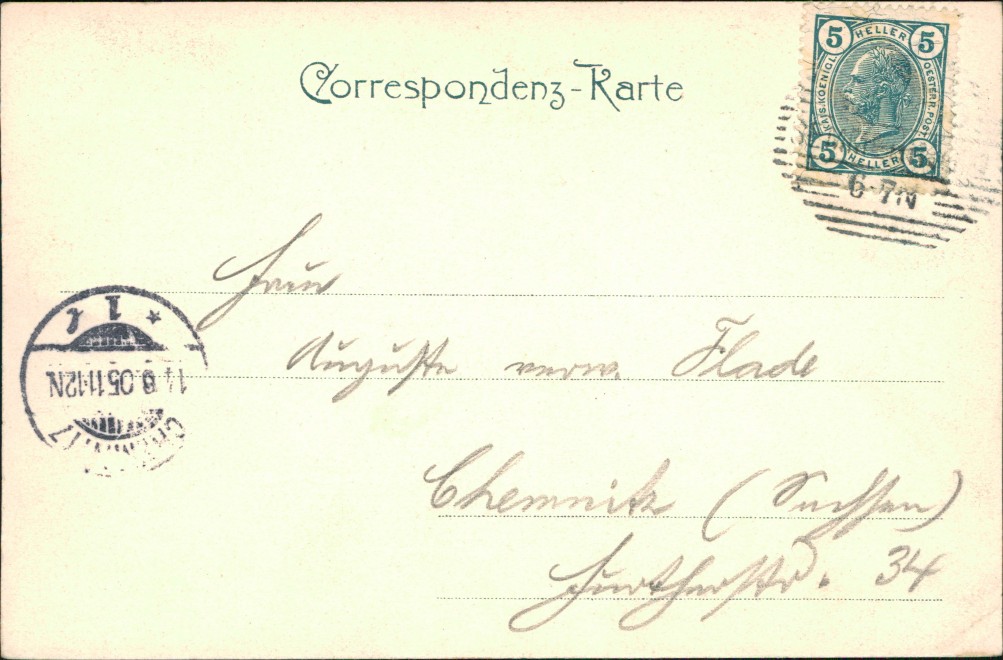 Correspondenz-Karte
5 HELLER 5
KAIS. KOENIGL. OESTERR. POST.
5 HELLER 5
6-7N
Frau
Auguste verw. Flade
Chemnitz (Sachsen)
Furtherstr. 34
CHEMNITZ
14.6.05 11-12N
* 1